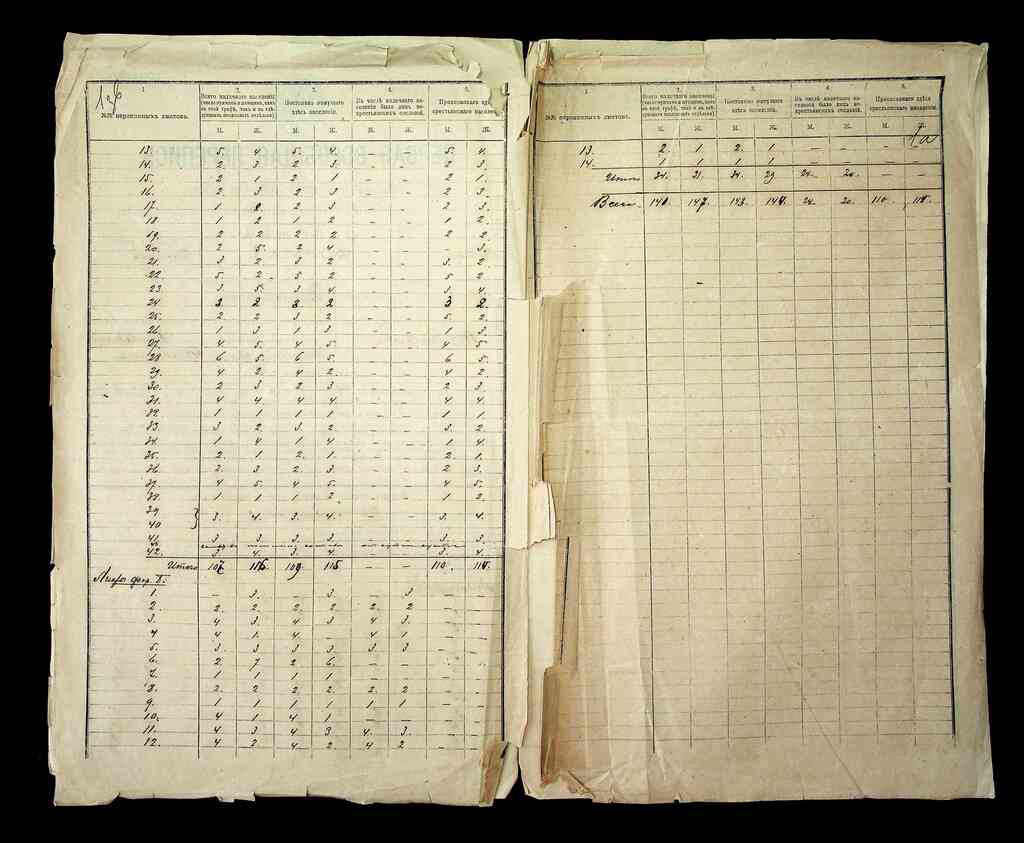 1 2. 3. 4. 5.
№№ переписныхъ листовъ. Всего наличнаго населенія Постоянно живущаго здѣсь населенія. Въ числѣ наличнаго населенія было лицъ не-крестьянскихъ сословій. Приписаннаго здѣсь крестьянскаго населенія.
М. Ж. М. Ж. М. Ж. М. Ж.
13. 5. 4. 5. 4. – – 5. 4.
14. 2 3 2 3. – – 2 3.
15. 2 1 2 1 – – 2 1.
16. 2 3 2 3 – – 2 3.
17. 1 2 2 3 – – 2 3.
18 1 2 1 2 – – 1 2.
19. 2 2 2 2 – – 2 2
20. 2 5. 2 4 – – 3.
21. 3 2 3 2 – – 3. 2.
22. 5. 2 5 2 – – 5 2
23 3 5. 3 4. – – 3. 4.
24 3 2 3. 2 – – 3 2.
25. 2 2 3 2 – – 5. 2.
26. 1 3 1 3. – – 1 3.
27. 4 5. 4 5. – – 4 5.
28 6 5. 6 5. – – 6 5.
29. 4 2. 4 2. – – 4 2
30. 2 3 2 3 – – 2 3
31. 4 4 4 4. – – 4 4.
32 1 1 1 1 – – 1 1
33 3 2 3 2. – – 3. 2
34 1 4 1 4 – – 1 4.
35. 2. 1 2. 1. – – 2. 1.
36 2. 3 2. 3. – – 2 3.
37. 4 5. 4 5. – – 4 5.
38. 1 1 1 2 – – 1 2.
39
40 3. 4. 3. 4. – – 3. 4.
41. 3. 3. 3. 3. – – 3. 3.
42. 3 4. 3 4. 3. 4.
Итого 107 116 109 115 – – 110. 118.
1. – 3. – 3. – 3 – –
2. 2. 2. 2. 2. 2. 2 – –
3. 4 3. 4 3 4 3. – –
4 4 1. 4. – 4 1 – –
5. 3 3 3 3. 3 3 – –
6. 2 7 2 6. – – – –
7. 1 1 1 1 – – – –
8. 2. 2 2 2. 2. 2 – –
9. 1 1 1 1 1 1 – –
10. 4 1 4 1 – – – –
11. 4 3 4 3 4. 3. – –
12. 4 2 4 2 4 2 – –
1 2. 3. 4. 5.
№№ переписныхъ листовъ. Всего наличнаго населенія Постоянно живущаго здѣсь населенія. Въ числѣ наличнаго населенія было лицъ не-крестьянскихъ сословій. Приписаннаго здѣсь крестьянскаго населенія.
М. Ж. М. Ж. М. Ж. М. Ж.
13. 2. 1 2. 1 – – – –
14. 1 1 1 1. – – – –
Итого 34. 31. 34. 29 24. 20. – –
Всего. 141. 147. 143. 144. 24 20. 110 118.